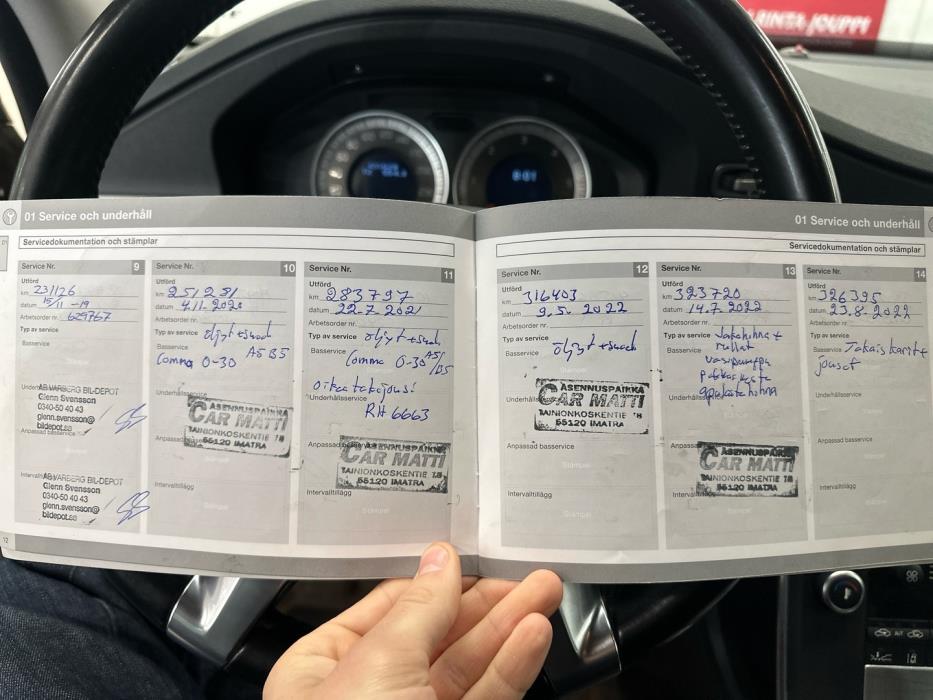 RINTA-JOUPPI
8:01
01 Service och underhåll
Servicedokumentation och stämplar
Service Nr. 9
Utförd
km 231126
datum 15/11 -19
Arbetsorder nr. 629767
Typ av service
Basservice
AB VARBERG BIL-DEPOT
Glenn Svensson
0340-50 40 43
glenn.svensson@
bildepot.se
Anpassad basservice
Intervalltillägg
AB VARBERG BIL-DEPOT
Glenn Svensson
0340-50 40 43
glenn.svensson@
bildepot.se
12
Service Nr. 10
Utförd
km 251231
datum 4.11.2020
Arbetsorder nr.
Typ av service öljyt+suod
Basservice A5 B5
Comma 0-30
Underhållsservice
ASENNUSPAIKKA
CAR MATTI
TAINIONKOSKENTIE 78
55120 IMATRA
Anpassad basservice
Intervalltillägg
Service Nr. 11
Utförd
km 283797
datum 22.7.2021
Arbetsorder nr.
Typ av service öljyt+suod
Basservice Comma 0-30 A5/B5
oikea takajousi
Underhållsservice
RH 6663
Anpassad basservice
ASENNUSPAIKKA
CAR MATTI
TAINIONKOSKENTIE 78
55120 IMATRA
Intervalltillägg
Stämpel
01 Service och underhåll
Servicedokumentation och stämplar
Service Nr. 12
Utförd
km 316403
datum 9.5.2022
Arbetsorder nr.
Typ av service
Basservice öljyt+suod
Underhållsservice
ASENNUSPAIKKA
CAR MATTI
TAINIONKOSKENTIE 78
55120 IMATRA
Anpassad basservice
Stämpel
Intervalltillägg
Stämpel
Service Nr. 13
Utförd
km 323720
datum 14.7.2022
Arbetsorder nr.
Typ av service Jakohihna+
Basservice rullat
vesipumppu
Underhållsservice
Anpassad basservice
ASENNUSPAIKKA
CAR MATTI
TAINIONKOSKENTIE 78
55120 IMATRA
Intervalltillägg
Service Nr. 14
Utförd
km 326395
datum 23.8.2022
Arbetsorder nr.
Typ av service
Basservice
jouset
Underhållsservice
Anpassad basservice
Intervalltillägg